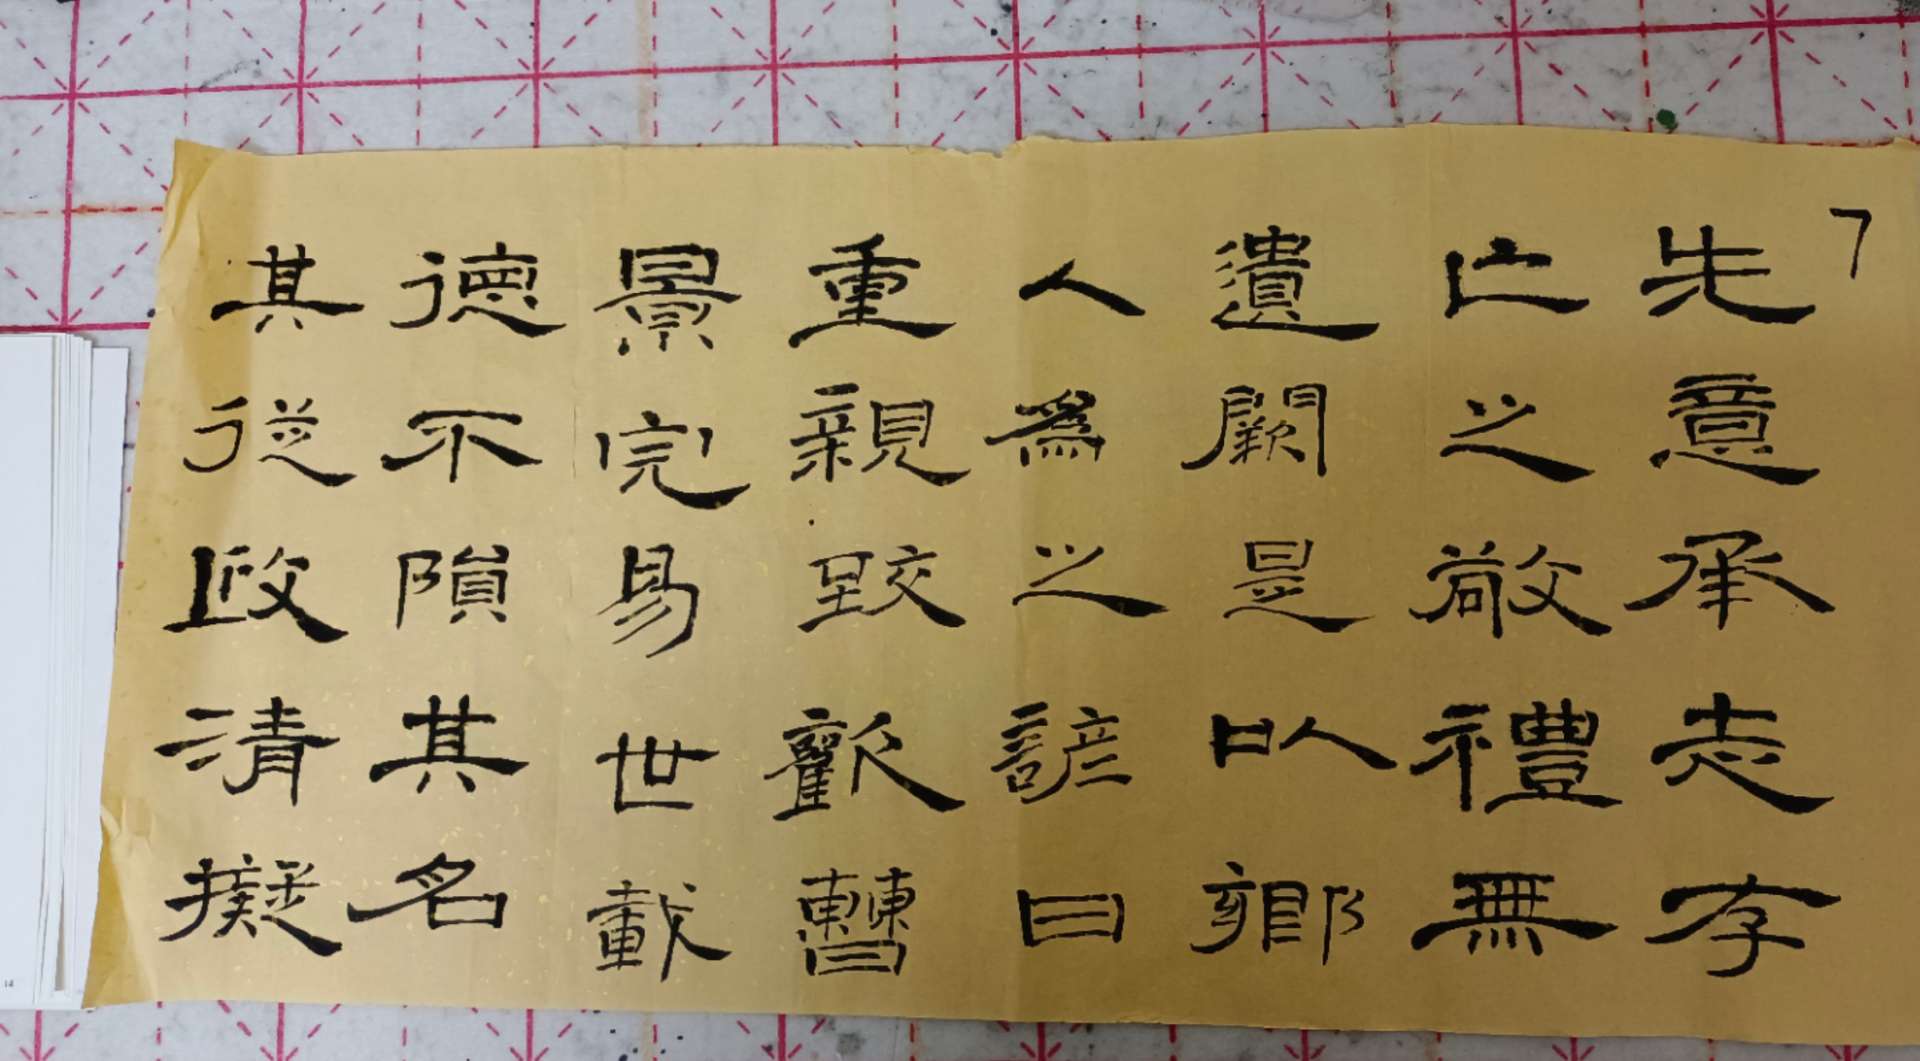 7
先意承志存
亡之敬禮無
遺闕是以鄉
人為之諺曰
重親致歡曹
景完易世載
德不隕其名
其從政清擬
14